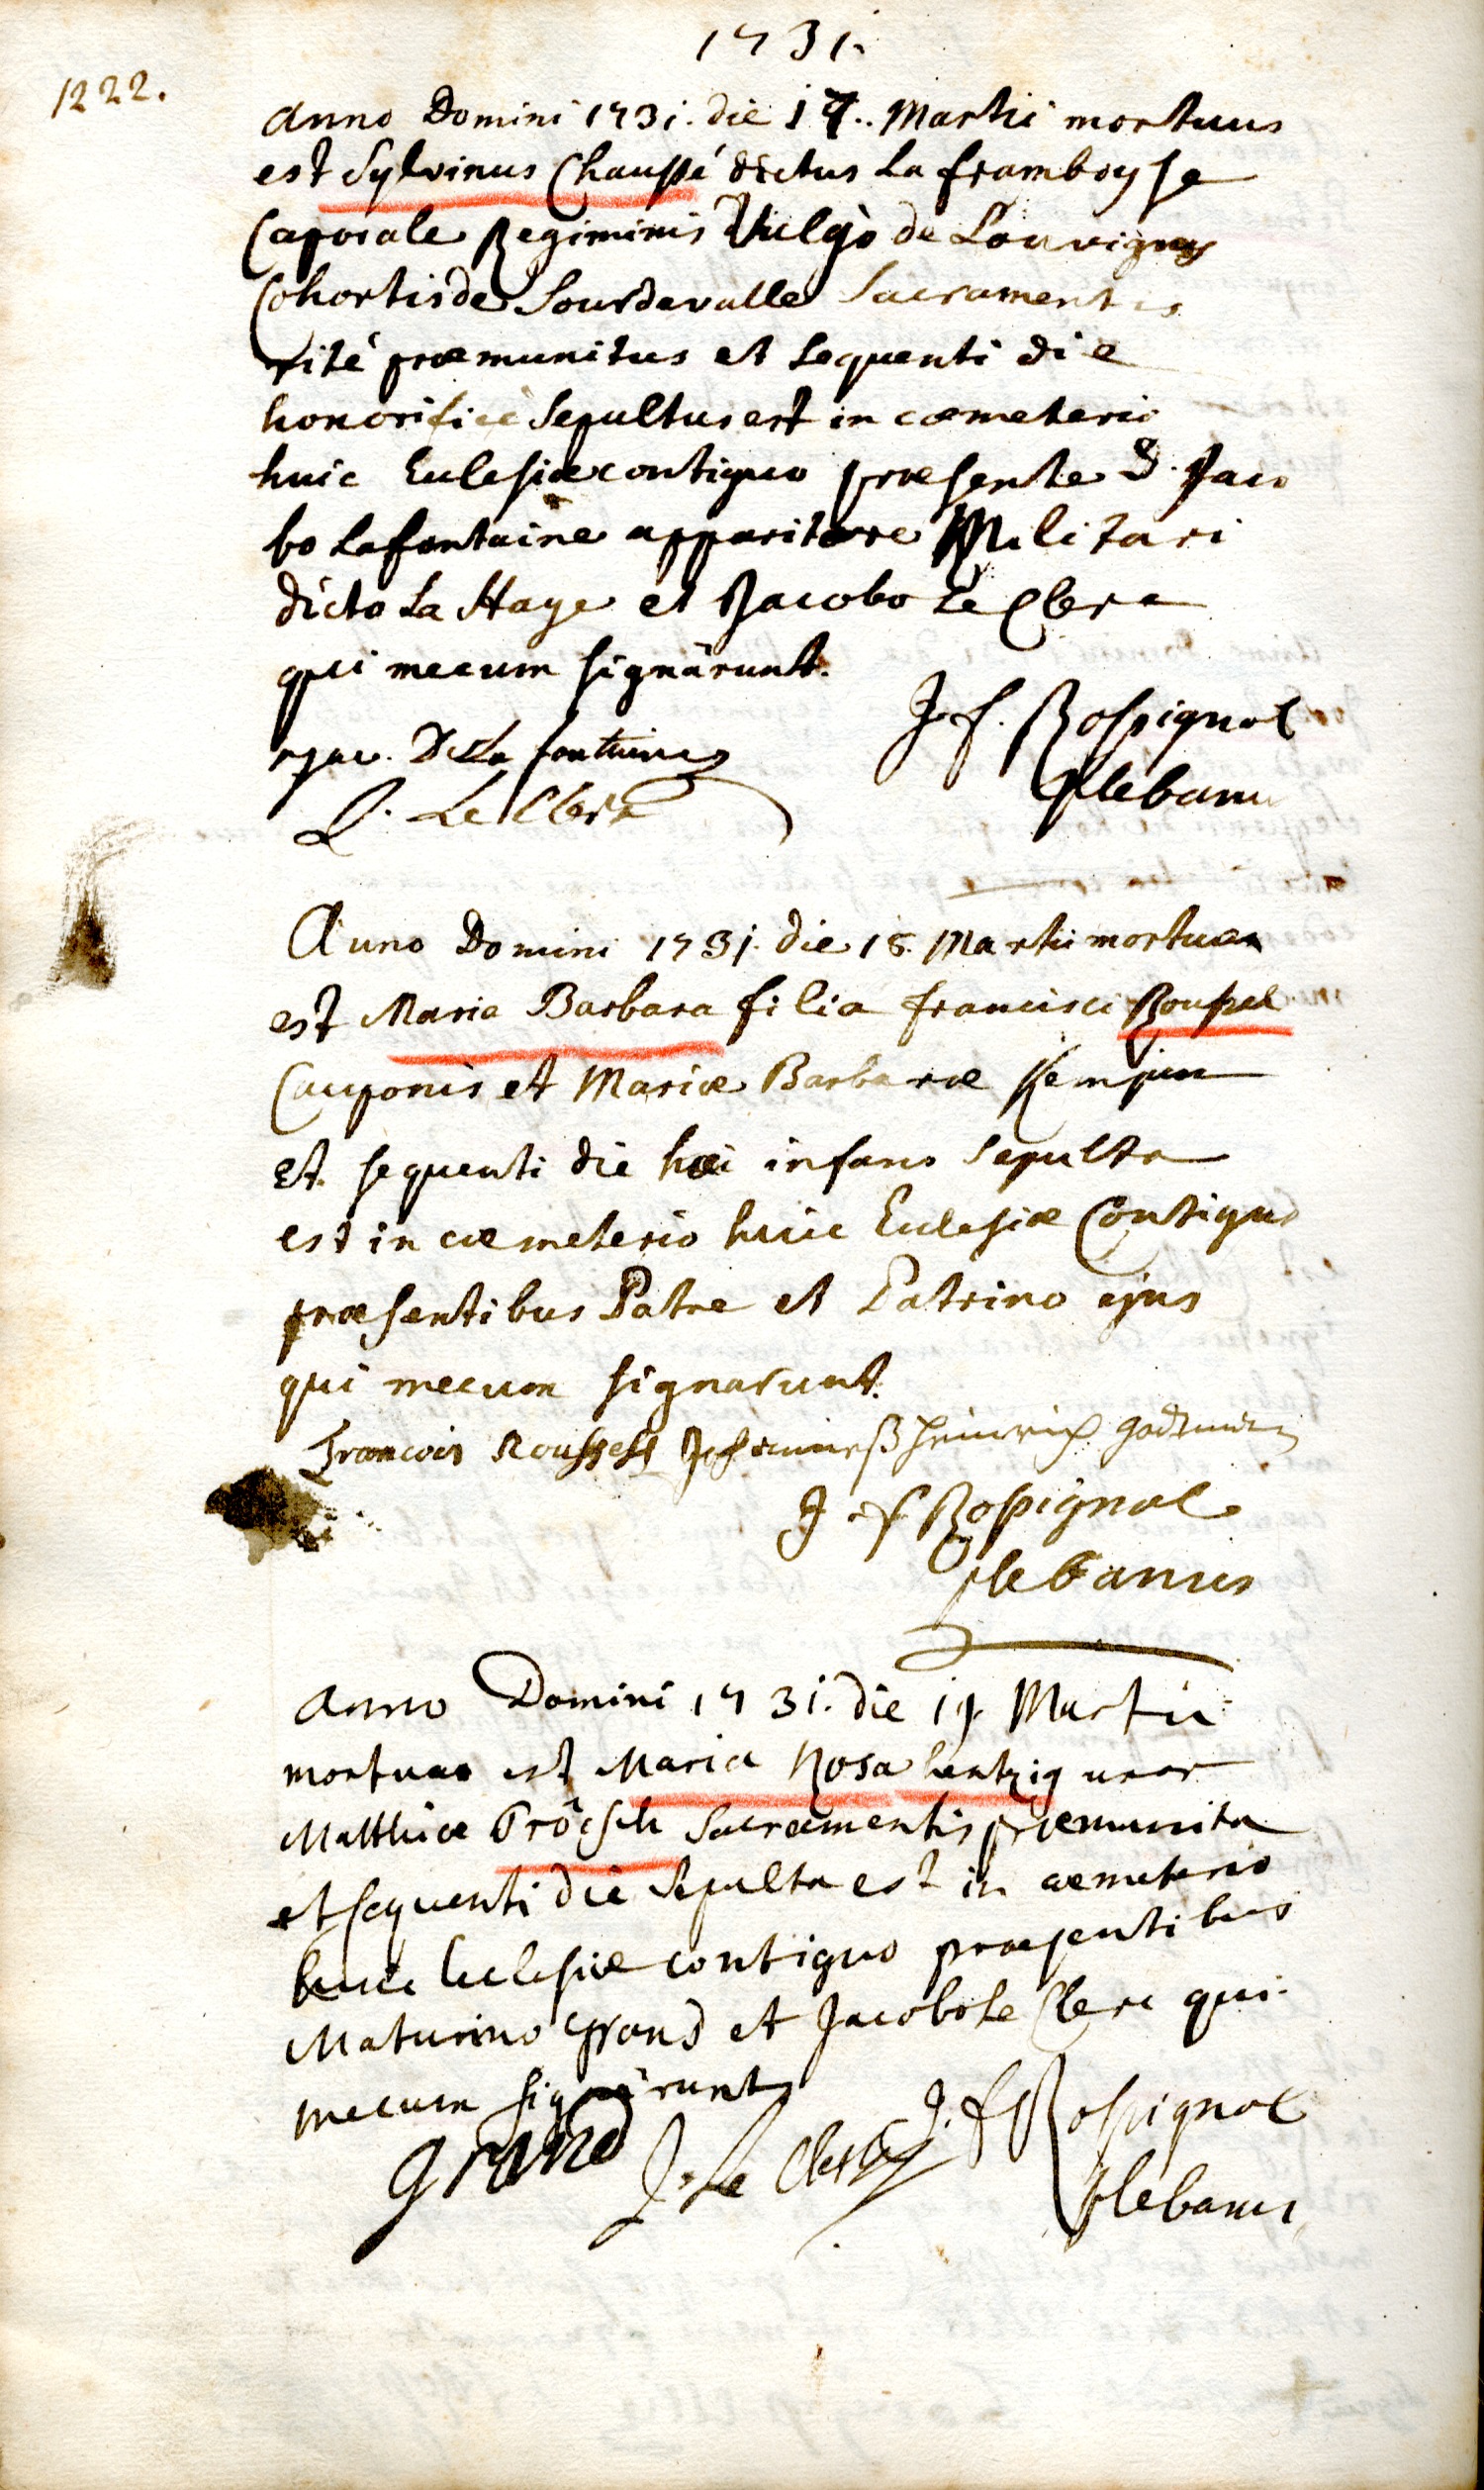 1731.
1222.
Anno Domini 1731. die 17. Martii mortuus
est Sylvinus Chaussé dictus La framboyse
Caporale Regiminis Vulgò de Louvigny
Cohortis de Sourdevalle Sacramentis
rité præmunitus et sequenti die
honorificè Sepultus est in cœmeterio
huic Ecclesiæ contiguo præsente D. Jaco
bo Lafontaine apparitore Militari
dicto La Haye et Jacobo Le Clerc
qui mecum signârunt.
J. f. Rossignol
Jac. De La fontaine
Plebanus
J. Le Clerc
Anno Domini 1731. die 18. Martii mortua
est Maria Barbara filia francisci Roussel
Cauponis et Mariæ Barbaræ
et sequenti die infans Sepulta
est in cœmeterio huic Ecclesiæ Contiguo
præsentibus Patre et Patrino ejus
qui mecum signarunt.
Francois Roussell Johanneß Heinrich
J. f. Rossignol
Plebanus
Anno Domini 1731. die 19. Martii
mortua est Maria Rosa hentzig uxor
Matthiæ Prôesch Sacramentis præmunita
et sequenti die Sepulta est in cœmeterio
huic Ecclesiæ contiguo præsentibus
Maturino Grand et Jacobo Le Clerc qui
mecum signârunt
J. f. Rossignol
Grand J. Le Clerc
Plebanus